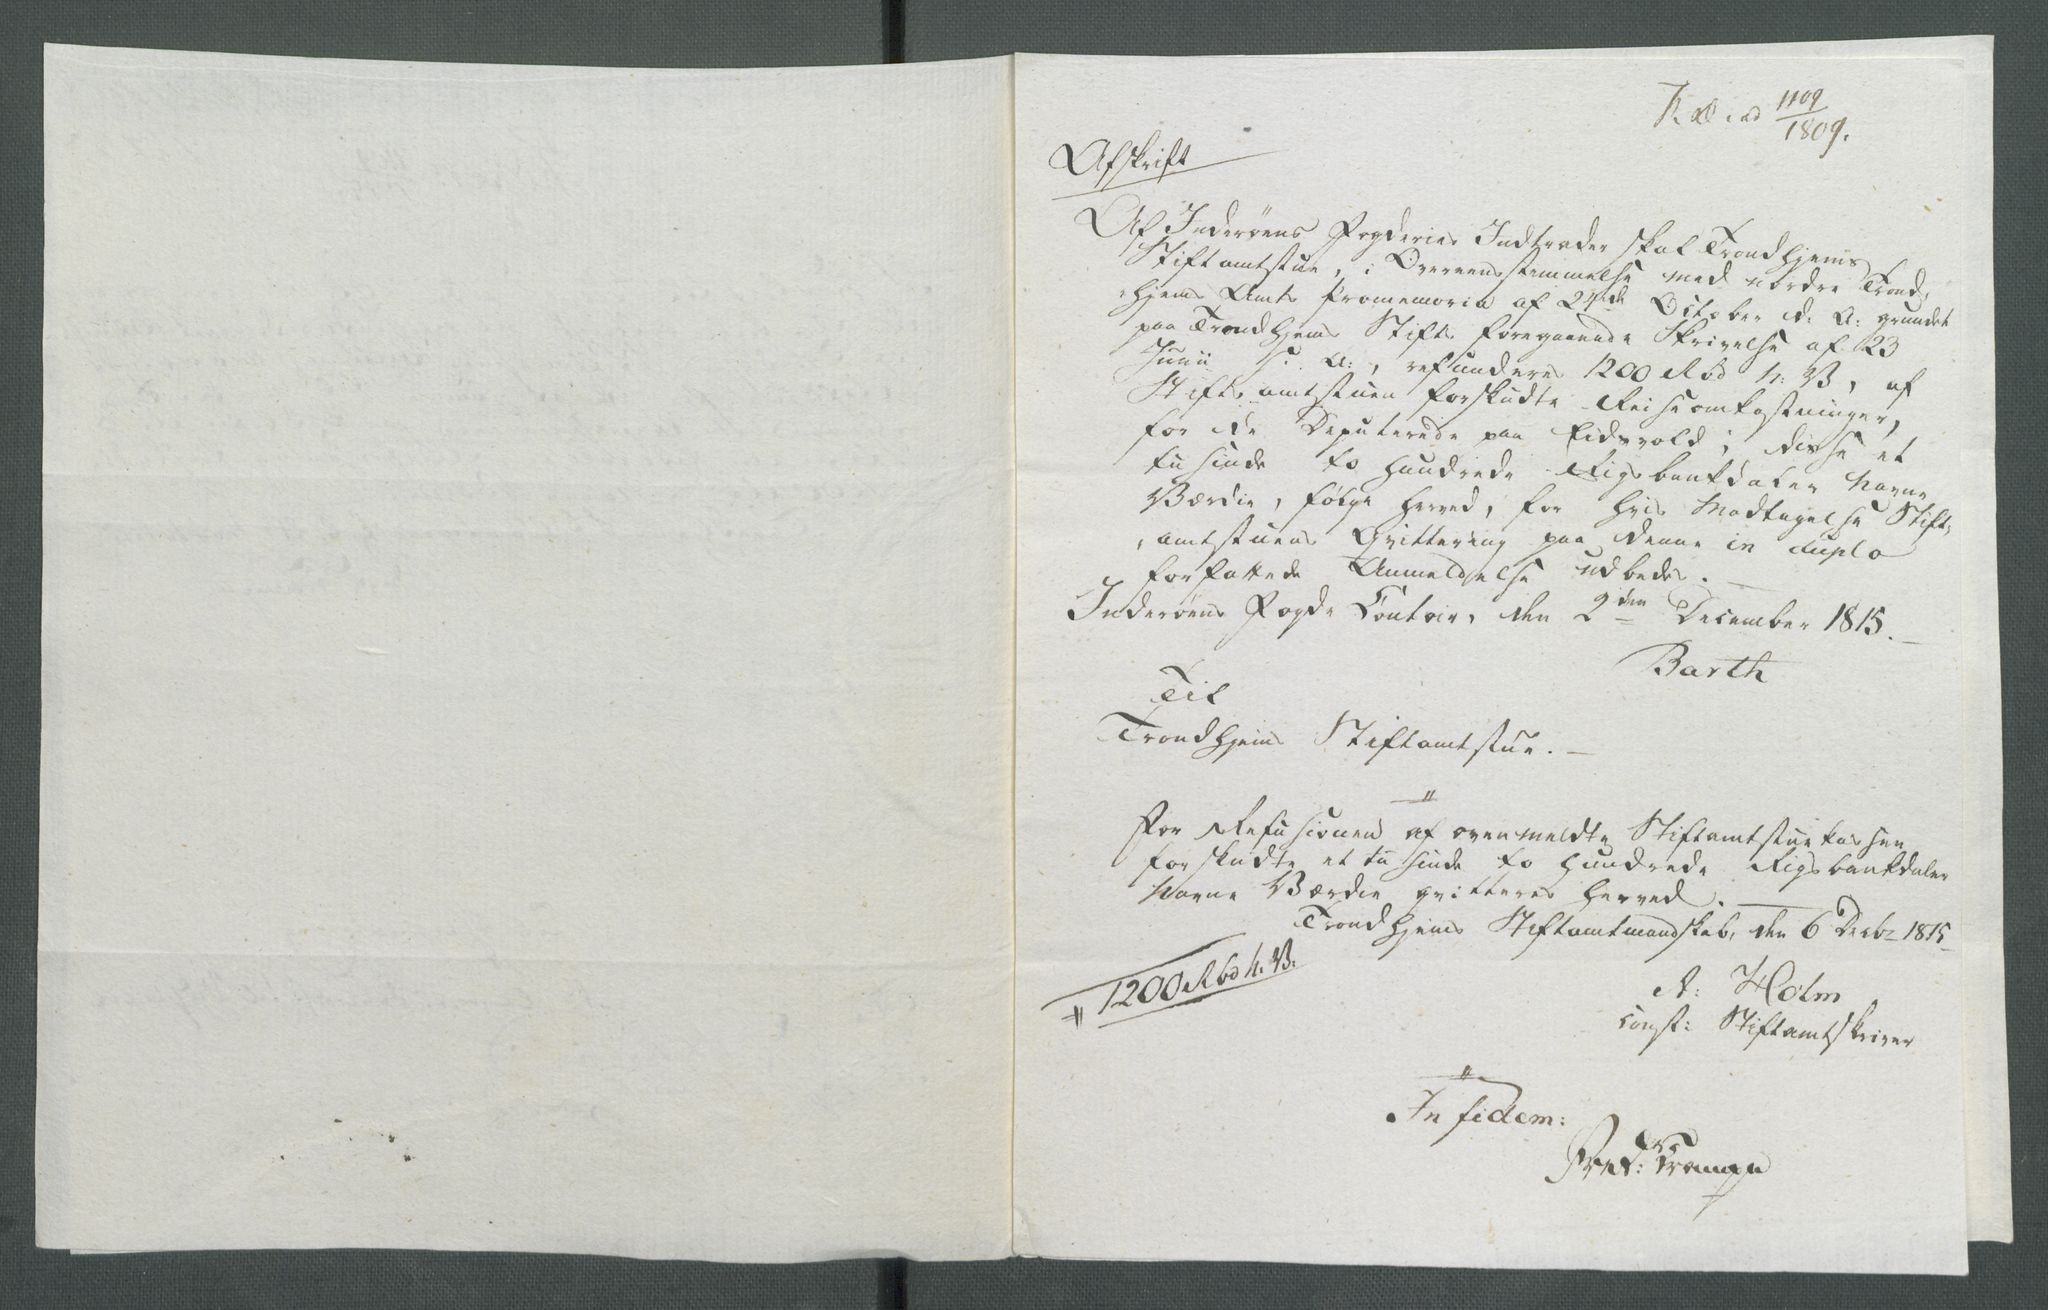 1109
1809.
Afskrift
Af Inderöens Fogderies Indtræder skal Trondhjems
Stiftamtstue, i Overeensstemmelse med nordre Trond,
,hjems Amts Promemoria af 24de October d. A: grundet
paa Trondhjems Stifts foregaaende Skrivelse af 23
Junii s. A:, refundere 1200 Rbd N: V, af
Stiftsamtstuen forskudte Reiseomkostninger,
for de Deputerede paa Eidsvold; disse et
tusinde to hundrede Rigsbankdaler Navne
Værdie, følge herved, for hvis Modtagelse Stift,
,amtstuens Qvittering paa denne in duplo
forfattede Anmeldelse udbedes.
Inderöens Fogde Contoir, den 2den December 1815.
Barth
Til
Trondhjems Stiftamtstue.
For Refusionen af ovenmeldte Stiftamtstuekassen
forskudte et tusinde to hundrede Rigsbankdaler
Navne Værdie qvitteres herved.
Trondhjems Stiftamtmandskab, den 6 Decbr 1815
1200 Rbd N. V.
A: Holm
const: Stiftamtskriver
In fidem:
Fred: Trampe